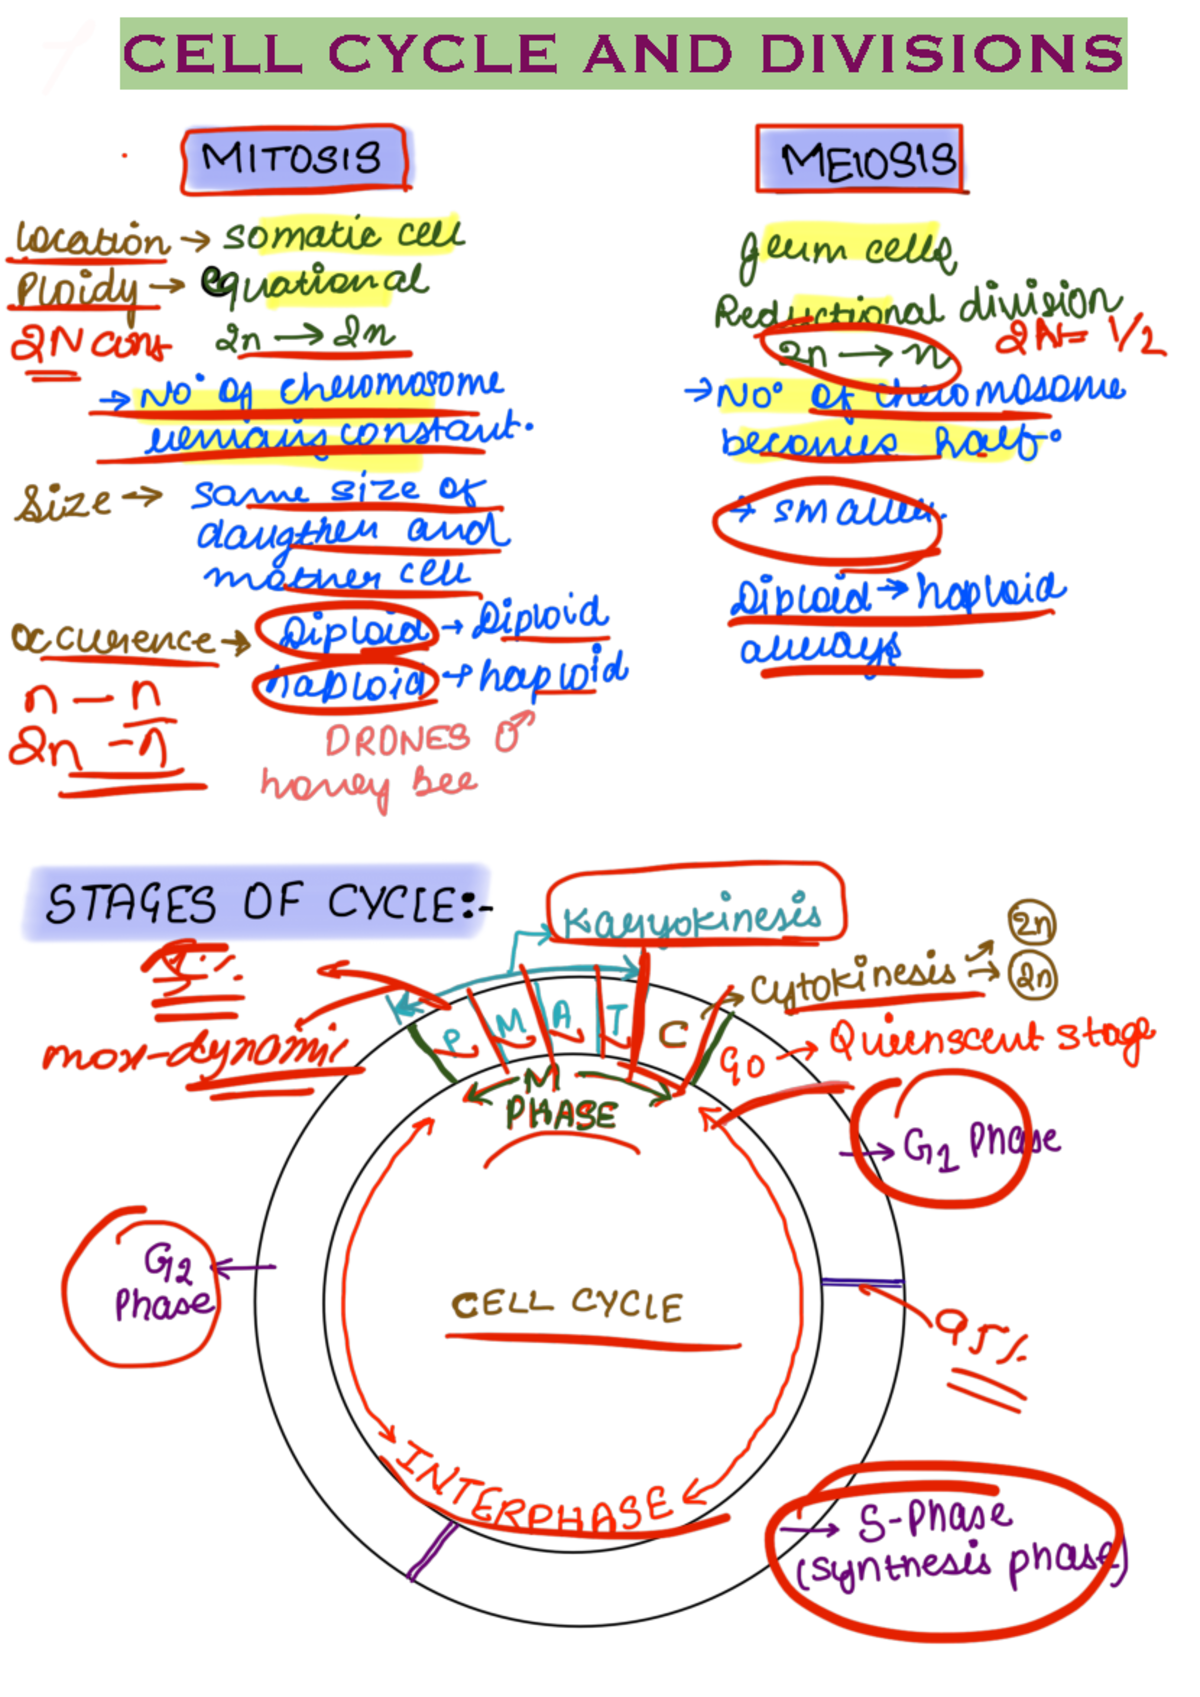 CELL CYCLE AND DIVISIONS
MITOSIS
Location → somatic cell
Ploidy → equational
2N cons
2n → 2n
→ No° of chromosome
remains constant.
Size → same size of
daugther and
mother cell
occurence → Diploid → Diploid
haploid → haploid
n — n
2n — n
DRONES ♂
honey bee
MEIOSIS
germ cells
Reductional division
2n → n
2N = 1/2
→ No° of chromosome
becomes half.
→ smaller.
Diploid → haploid
always
STAGES OF CYCLE:-
Karyokinesis
5%
mox-dynamic
P M A T C
Cytokinesis
2n
2n
G0 → Quienscent stage
M
PHASE
→ G1 Phase
G2
Phase
CELL CYCLE
95%
INTERPHASE
→ S-Phase
(synthesis phase)